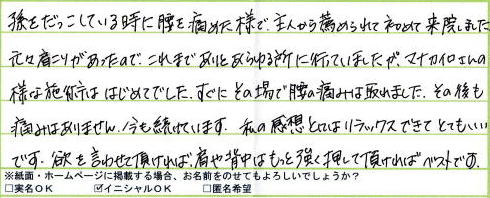 孫をだっこしている時に腰を痛めた様で、主人から薦められて初めて来院しました
元々肩こりがあったので、これまでありとあらゆる所に行っていましたが、マナカイロさんの
様な施術ははじめてでした。すぐにその場で腰の痛みは取れました。その後も
痛みはありません。今も続けています。私の感想としてはリラックスできてとてもいい
です。欲を言わせて頂ければ、肩や背中はもっと強く押して頂ければベストです。
※紙面・ホームページに掲載する場合、お名前をのせてもよろしいでしょうか？
□実名ＯＫ ☑イニシャルＯＫ □匿名希望